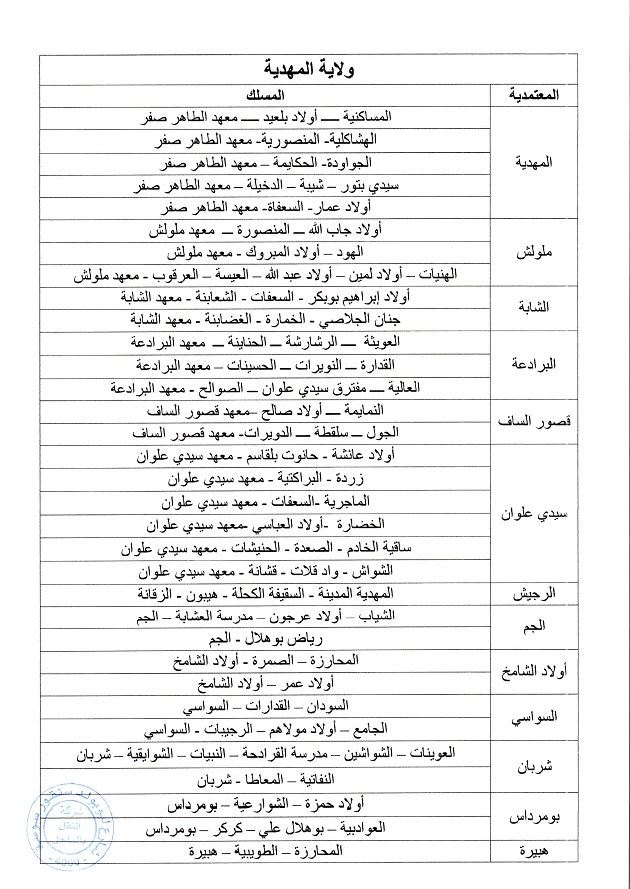 ولاية المهدية
المعتمدية المسلك
المهدية المساكنية – أولاد بلعيد – معهد الطاهر صفر
الهشاكلية- المنصورية- معهد الطاهر صفر
الجواودة- الحكايمة – معهد الطاهر صفر
سيدي بتور – شيبة – الدخيلة – معهد الطاهر صفر
أولاد عمار- السعفاة- معهد الطاهر صفر
ملولش أولاد جاب الله – المنصورة – معهد ملولش
الهود – أولاد المبروك - معهد ملولش
الهنيات – أولاد لمين – أولاد عبد الله – العيسة – العرقوب - معهد ملولش
الشابة أولاد إبراهيم بوبكر - السعفات - الشعابنة - معهد الشابة
جنان الجلاصي - الخمارة - الغضابنة - معهد الشابة
البرادعة العويثة – الرشارشة – الحناينة – معهد البرادعة
القدارة – النويرات – الحسينات – معهد البرادعة
العالية – مفترق سيدي علوان – الصوالح - معهد البرادعة
قصور الساف النمايمة – أولاد صالح –معهد قصور الساف
الجول – سلقطة – الدويرات- معهد قصور الساف
سيدي علوان أولاد عائشة - حانوت بلقاسم - معهد سيدي علوان
زردة - البراكتية - معهد سيدي علوان
الماجرية -السعفات - معهد سيدي علوان
الخضارة -أولاد العباسي -معهد سيدي علوان
ساقية الخادم - الصعدة - الحنيشات - معهد سيدي علوان
الشواش - واد قلات - قشانة - معهد سيدي علوان
الرجيش المهدية المدينة - السقيفة الكحلة - هيبون - الزقانة
الجم الشياب – أولاد عرجون – مدرسة العشابة – الجم
رياض بوهلال - الجم
أولاد الشامخ المحارزة – الصمرة - أولاد الشامخ
أولاد عمر – أولاد الشامخ
السواسي السودان – القدارات – السواسي
الجامع – أولاد مولاهم – الرجيبات - السواسي
شربان العوينات – الشواشين – مدرسة القرادحة – النبيات – الشوايقية – شربان
النفاتية – المعاطا - شربان
بومرداس أولاد حمزة – الشوارعية – بومرداس
العوادبية – بوهلال علي – كركر - بومرداس
هبيرة المحارزة – الطويبية – هبيرة
شركة
النقل
بالساحل